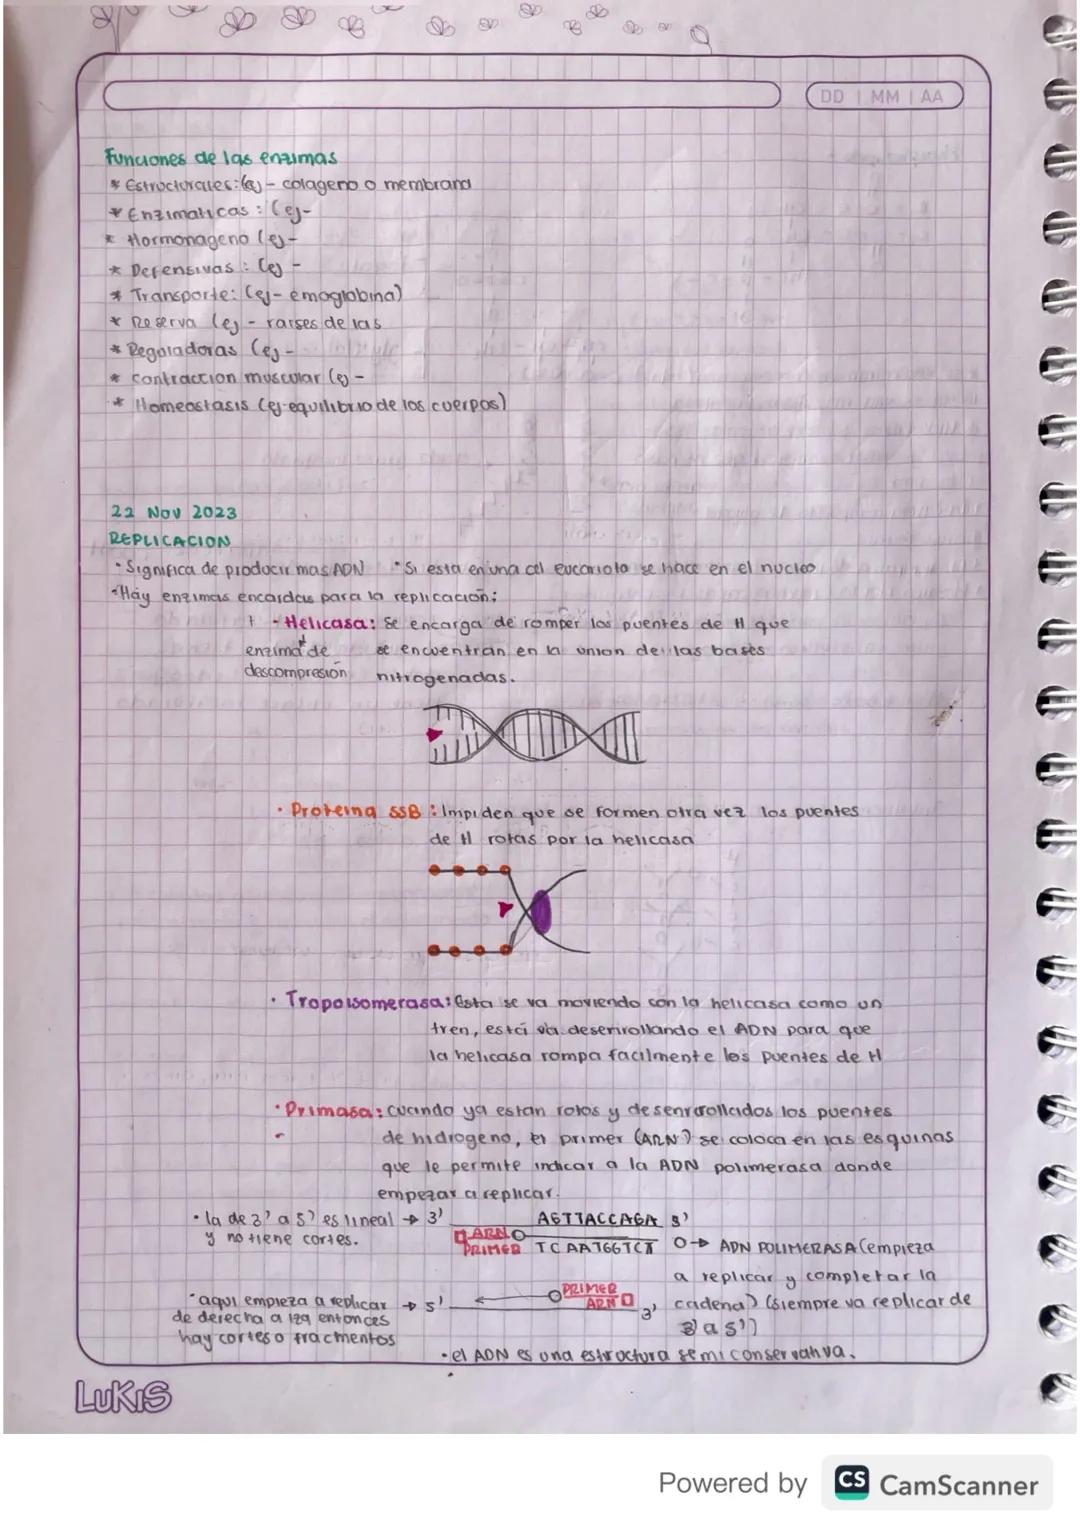 DD | MM | AA
Funciones de las enzimas
* Estructurales: (ej - colageno o membrana
* Enzimaticas : (ej -
* Hormonageno (ej -
* Defensivas : (ej -
* Transporte: (ej - emoglobina)
* Reserva (ej - raises de las
* Regoladoras (ej -
* contraccion muscular (ej -
* Homeostasis (ej-equilibrio de los cuerpos)
22 Nov 2023
REPLICACION
· Significa de producir mas ADN · Si esta en una cel eucariota se hace en el nucleo
· Hay enzimas encardas para la replicación:
- Helicasa: Se encarga de romper los puentes de H que
enzima de se encuentran en la union de las bases
descompresión nitrogenadas.
· Proteina SSB : Impiden que se formen otra vez los puentes
de H rotas por la helicasa
· Tropoisomerasa: Esta se va moviendo con la helicasa como un
tren, está va desenrollando el ADN para que
la helicasa rompa facilmente los puentes de H
· Primasa: cuando ya estan rotos y desenrrollados los puentes
de hidrogeno, el primer (ARN) se coloca en las esquinas
que le permite indicar a la ADN polimerasa donde
empezar a replicar.
· la de 3' a 5' es lineal → 3' AGTTACCAGA 5'
y no tiene cortes. ARN
PRIMER TCAATGGTCT O→ ADN POLIMERASA (empieza
a replicar y completar la
· aqui empieza a replicar → 5' PRIMER ARN 3' cadena) (siempre va replicar de
de derecha a izq entonces 3' a 5')
hay cortes o fracmentos
· el ADN es una estructura semiconservativa.
LUKIS
Powered by CS CamScanner